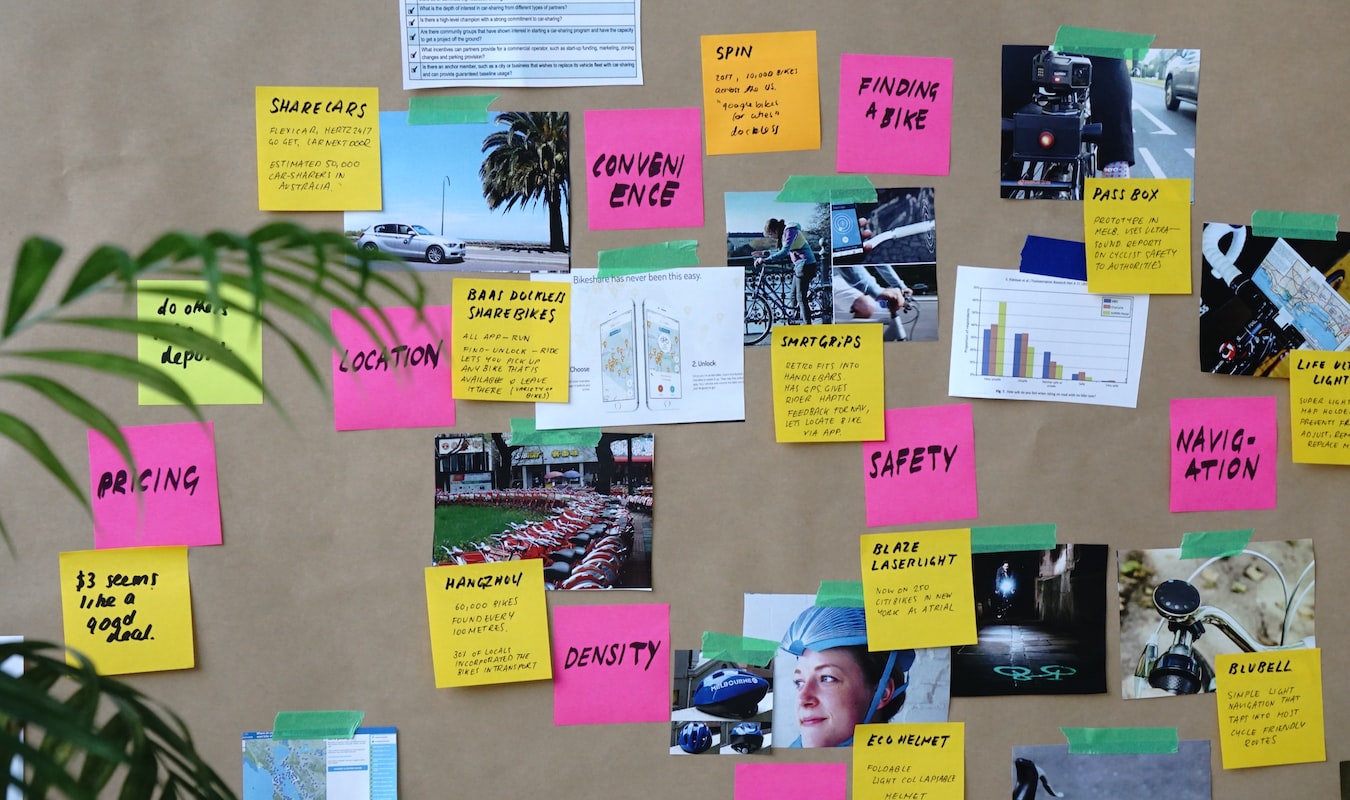 What is the depth of interest in car-sharing from different types of partners?
Is there a high-level champion with a strong commitment to car-sharing?
Are there community groups that have shown interest in starting a car-sharing program and have the capacity
to get a project off the ground?
What incentives can partners provide for a commercial operator, such as start-up funding, marketing, zoning
changes and parking provision?
Is there an anchor member, such as a city or business that wishes to replace its vehicle fleet with car-sharing
and can provide guaranteed baseline usage?
SPIN
2017, 10,000 BIKES
across the US.
dockless
FINDING
A BIKE
SHARECARS
FLEXICAR, HERTZ 24/7
GO GET, CAR NEXT DOOR
ESTIMATED 50,000
CAR-SHARERS IN
AUSTRALIA.
CONVENI
ENCE
PASS BOX
PROTOTYPE IN
MELB. USES ULTRA-
SOUND REPORTS
ON CYCLIST SAFETY
TO AUTHORITIES
do others
LOCATION
BAAS DOCKLESS
SHAREBIKES
ALL APP-RUN
FIND-UNLOCK-RIDE
LETS YOU PICK UP
ANY BIKE THAT IS
AVAILABLE & LEAVE
IT THERE (VARIETY OF
BIKES)
Bikeshare has never been this easy.
Choose
2. Unlock
SMRTGRIPS
RETRO FITS INTO
HANDLEBARS
HAS GPS. GIVES
RIDER HAPTIC
FEEDBACK FOR NAV,
LETS LOCATE BIKE
VIA APP.
LIFE
LIGHT
SUPER LIGHT
MAP HOLDE
PREVENT
ADJUST,
REPLACE
PRICING
SAFETY
NAVIG-
ATION
$3 seems
like a
good
deal.
HANGZHOU
60,000 BIKES
FOUND EVERY
100 METRES.
30% OF LOCALS
INCORPORATED THE
BIKES IN TRANSPORT
DENSITY
BLAZE
LASERLIGHT
NOW ON 250
CITIBIKES IN NEW
YORK AS A TRIAL
MELBOURNE
BLUBELL
SIMPLE LIGHT
NAVIGATION THAT
TAPS INTO MOST
CYCLE FRIENDLY
ROUTES
ECO HELMET
FOLDABLE
LIGHT COLLAPSABLE
HELMET